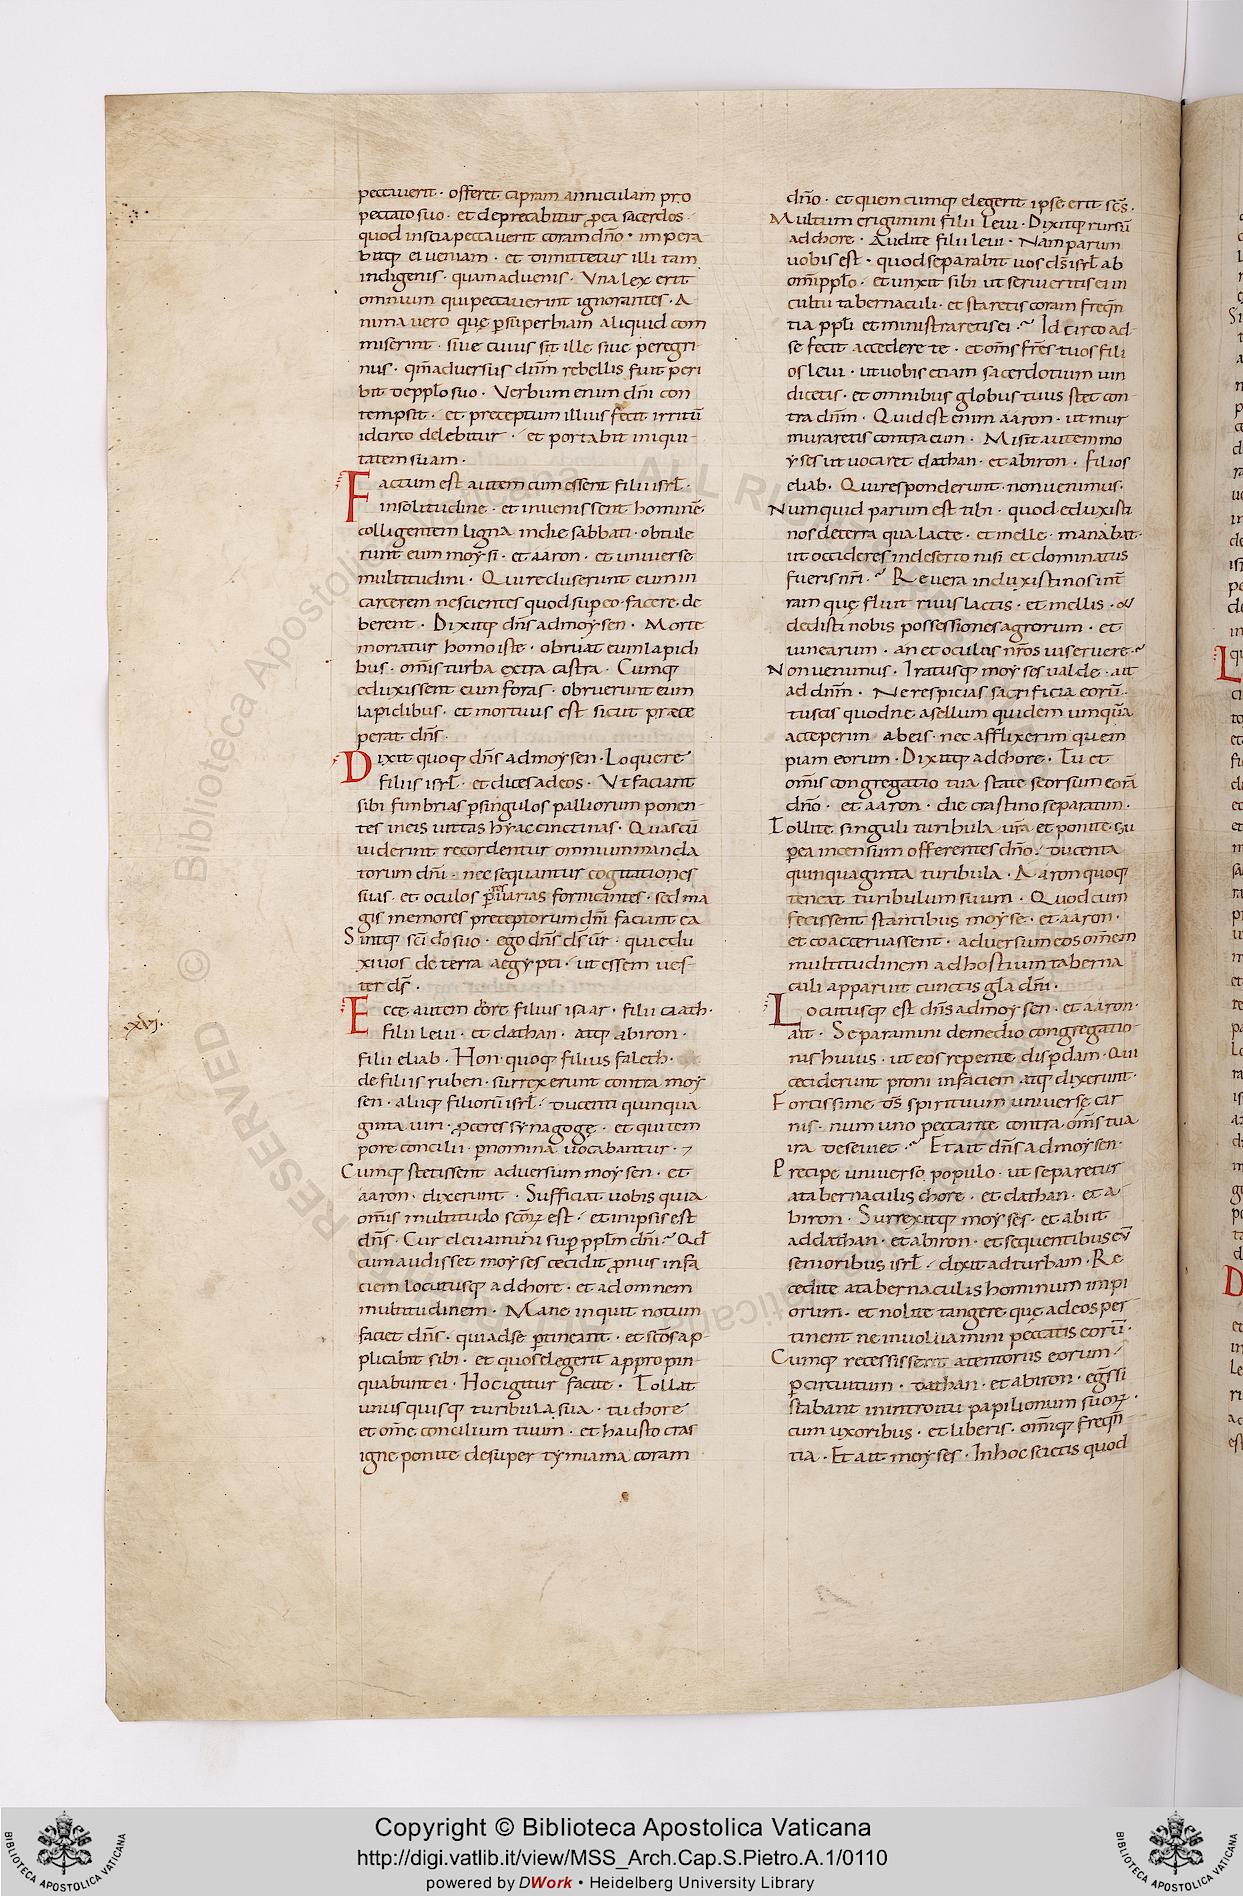 peccaverit · offeret capram anniculam pro
peccato suo · et deprecabitur ꝓ ea sacerdos ·
quod inscia peccaverit coram dño · impera
bitq; ei veniam · et dimittetur illi tam
indigenis · quam advenis · Una lex erit
omnium qui peccaverint ignorantes · A
nima vero quę ꝑ superbiam aliquid com
miserint · sive civis sit ille sive peregri
nus · qm̄ adversus dnm̄ rebellis fuit peri
bit de pplo suo · Verbum enim dñi con
tempsit · et preceptum illius fecit irritū
idcirco delebitur · et portabit iniqui
tatem suam ·
Factum est autem cum essent filii isrl̄ ·
in solitudine · et invenissent hominē
colligentem ligna in die sabbati · obtule
runt eum moysi · et aaron · et universe
multitudini · Qui recluserunt eum in
carcerem nescientes quod sup eo facere de
berent · Dixitq; dñs ad moysen · Morte
moriatur homo iste · obruat eum lapidi
bus · omīs turba extra castra · Cumq;
eduxissent eum foras · obruerunt eum
lapidibus · et mortuus est sicut præce
perat dñs ·
Dixit quoq; dñs ad moysen · Loquere
filiis isrl̄ · et dices ad eos · Ut faciant
sibi fimbrias ꝑ singulos palliorum ponen
tes in eis vittas hyaccinctinas · Quas cū
viderint recordentur omnium manda
torum dñi · nec sequantur cogitationes
suas · et oculos ꝑ varias fornicantes · sed ma
gis memores preceptorum dñi faciant ea
Sintq; sc̄i do suo · ego dñs ds̄ vr̄ · qui edu
xi vos de terra aegypti · ut essem ves
ter ds̄ ·
.xxvj.
Ecce autem chore filius isaar · filii caath ·
filii levi · et dathan · atq; abiron ·
filii eliab · Hon quoq; filius faleth ·
de filiis ruben · surrexerunt contra moy
sen · aliiq; filiorū isrl̄ · ducenti quinqua
ginta viri · ꝓceres synagogę · et qui tem
pore concilii · ꝑ nomina vocabantur · 
Cumq; stetissent adversum moysen · et
aaron · dixerunt · Sufficiat vobis quia
omīs multitudo sc̄orꝝ est · et in ipsis est
dñs · Cur elevamini sup pplm̄ dñi · Qd̄
cum audisset moyses cecidit ꝓnus in fa
ciem locutusq; ad chore · et ad omnem
multitudinem · Mane inquit notum
faciet dñs · qui ad se ꝑtineant · et sc̄os ap
plicabit sibi · et quos elegerit appropin
quabunt ei · Hoc igitur facite · Tollat
unusquisq; turibula sua · tu chore
et om̄e concilium tuum · et hausto cras
igne ponite desuper tymiama coram
dño · et quemcumq; elegerit ipse erit sc̄s ·
Multum erigimini filii levi · Dixitq; rursū
ad chore · Audite filii levi · Nam parum
vobis est · quod separabit vos ds̄ isrl̄ ab
om̄i pplo · et unxit sibi ut serviretis ei in
cultu tabernaculi · et staretis coram freqn̄
tia ppli et ministraretis ei · Idcirco ad
se fecit accedere te · et om̄s frēs tuos fili
os levi · ut vobis etiam sacerdotium vin
dicetis · et omnibus globus tuus stet con
tra dnm̄ · Quid est enim aaron · ut mur
muraretis contra eum · Misit autem mo
yses ut vocaret dathan · et abiron · filios
eliab · Qui responderunt · non venimus ·
Numquid parum est tibi · quod eduxisti
nos de terra qua lacte · et melle · manabat ·
ut occideres in deserto nisi et dominatus
fueris nr̄i · Revera induxisti nos in t̄
ram quę fluit rivis lactis · et mellis · &
dedisti nobis possessiones agrorum · et
vinearum · an et oculos nr̄os vis eruere ·
Non venimus · Iratusq; moyses valde · ait
ad dnm̄ · Ne respicias sacrificia eorū ·
tu scis quod ne asellum quidem umquā
acceperim ab eis · nec afflixerim quem
piam eorum · Dixitq; ad chore · Tu et
omīs congregatio tua state seorsum corā
dño · et aaron · die crastino separatim ·
Tollite singuli turibula vr̄a et ponite su
per ea incensum offerentes dño · ducenta
quinquaginta turibula · Aaron quoq;
teneat turibulum suum · Quod cum
fecissent stantibus moyse · et aaron ·
et coacervassent · adversum eos om̄em
multitudinem ad hostium taberna
culi apparuit cunctis gla dñi ·
Locutusq; est dñs ad moysen · et aaron ·
ait · Separamini de medio congregatio
nis huius · ut eos repente disꝑdam · Qui
ceciderunt proni in faciem atq; dixerunt ·
Fortissime ds̄ spirituum universę car
nis · num uno peccante contra om̄s tua
ira deseviet · Et ait dñs ad moysen ·
Precipe universo populo · ut separetur
a tabernaculis chore · et dathan · et a
biron · Surrexitq; moyses · et abiit
ad dathan · et abiron · et sequentibus eū
senioribus isrl̄ · dixit ad turbam · Re
cedite a tabernaculis hominum impi
orum · et nolite tangere quę ad eos per
tinent ne involvamini peccatis eorū ·
Cumq; recessissent a tentoriis eorum ·
ꝑ circuitum · dathan · et abiron · egr̄ssi
stabant in introitu papilionum suorꝝ ·
cum uxoribus · et liberis · om̄iq; freqn̄
tia · Et ait moyses · In hoc scietis quod
Copyright © Biblioteca Apostolica Vaticana
http://digi.vatlib.it/view/MSS_Arch.Cap.S.Pietro.A.1/0110
powered by DWork • Heidelberg University Library